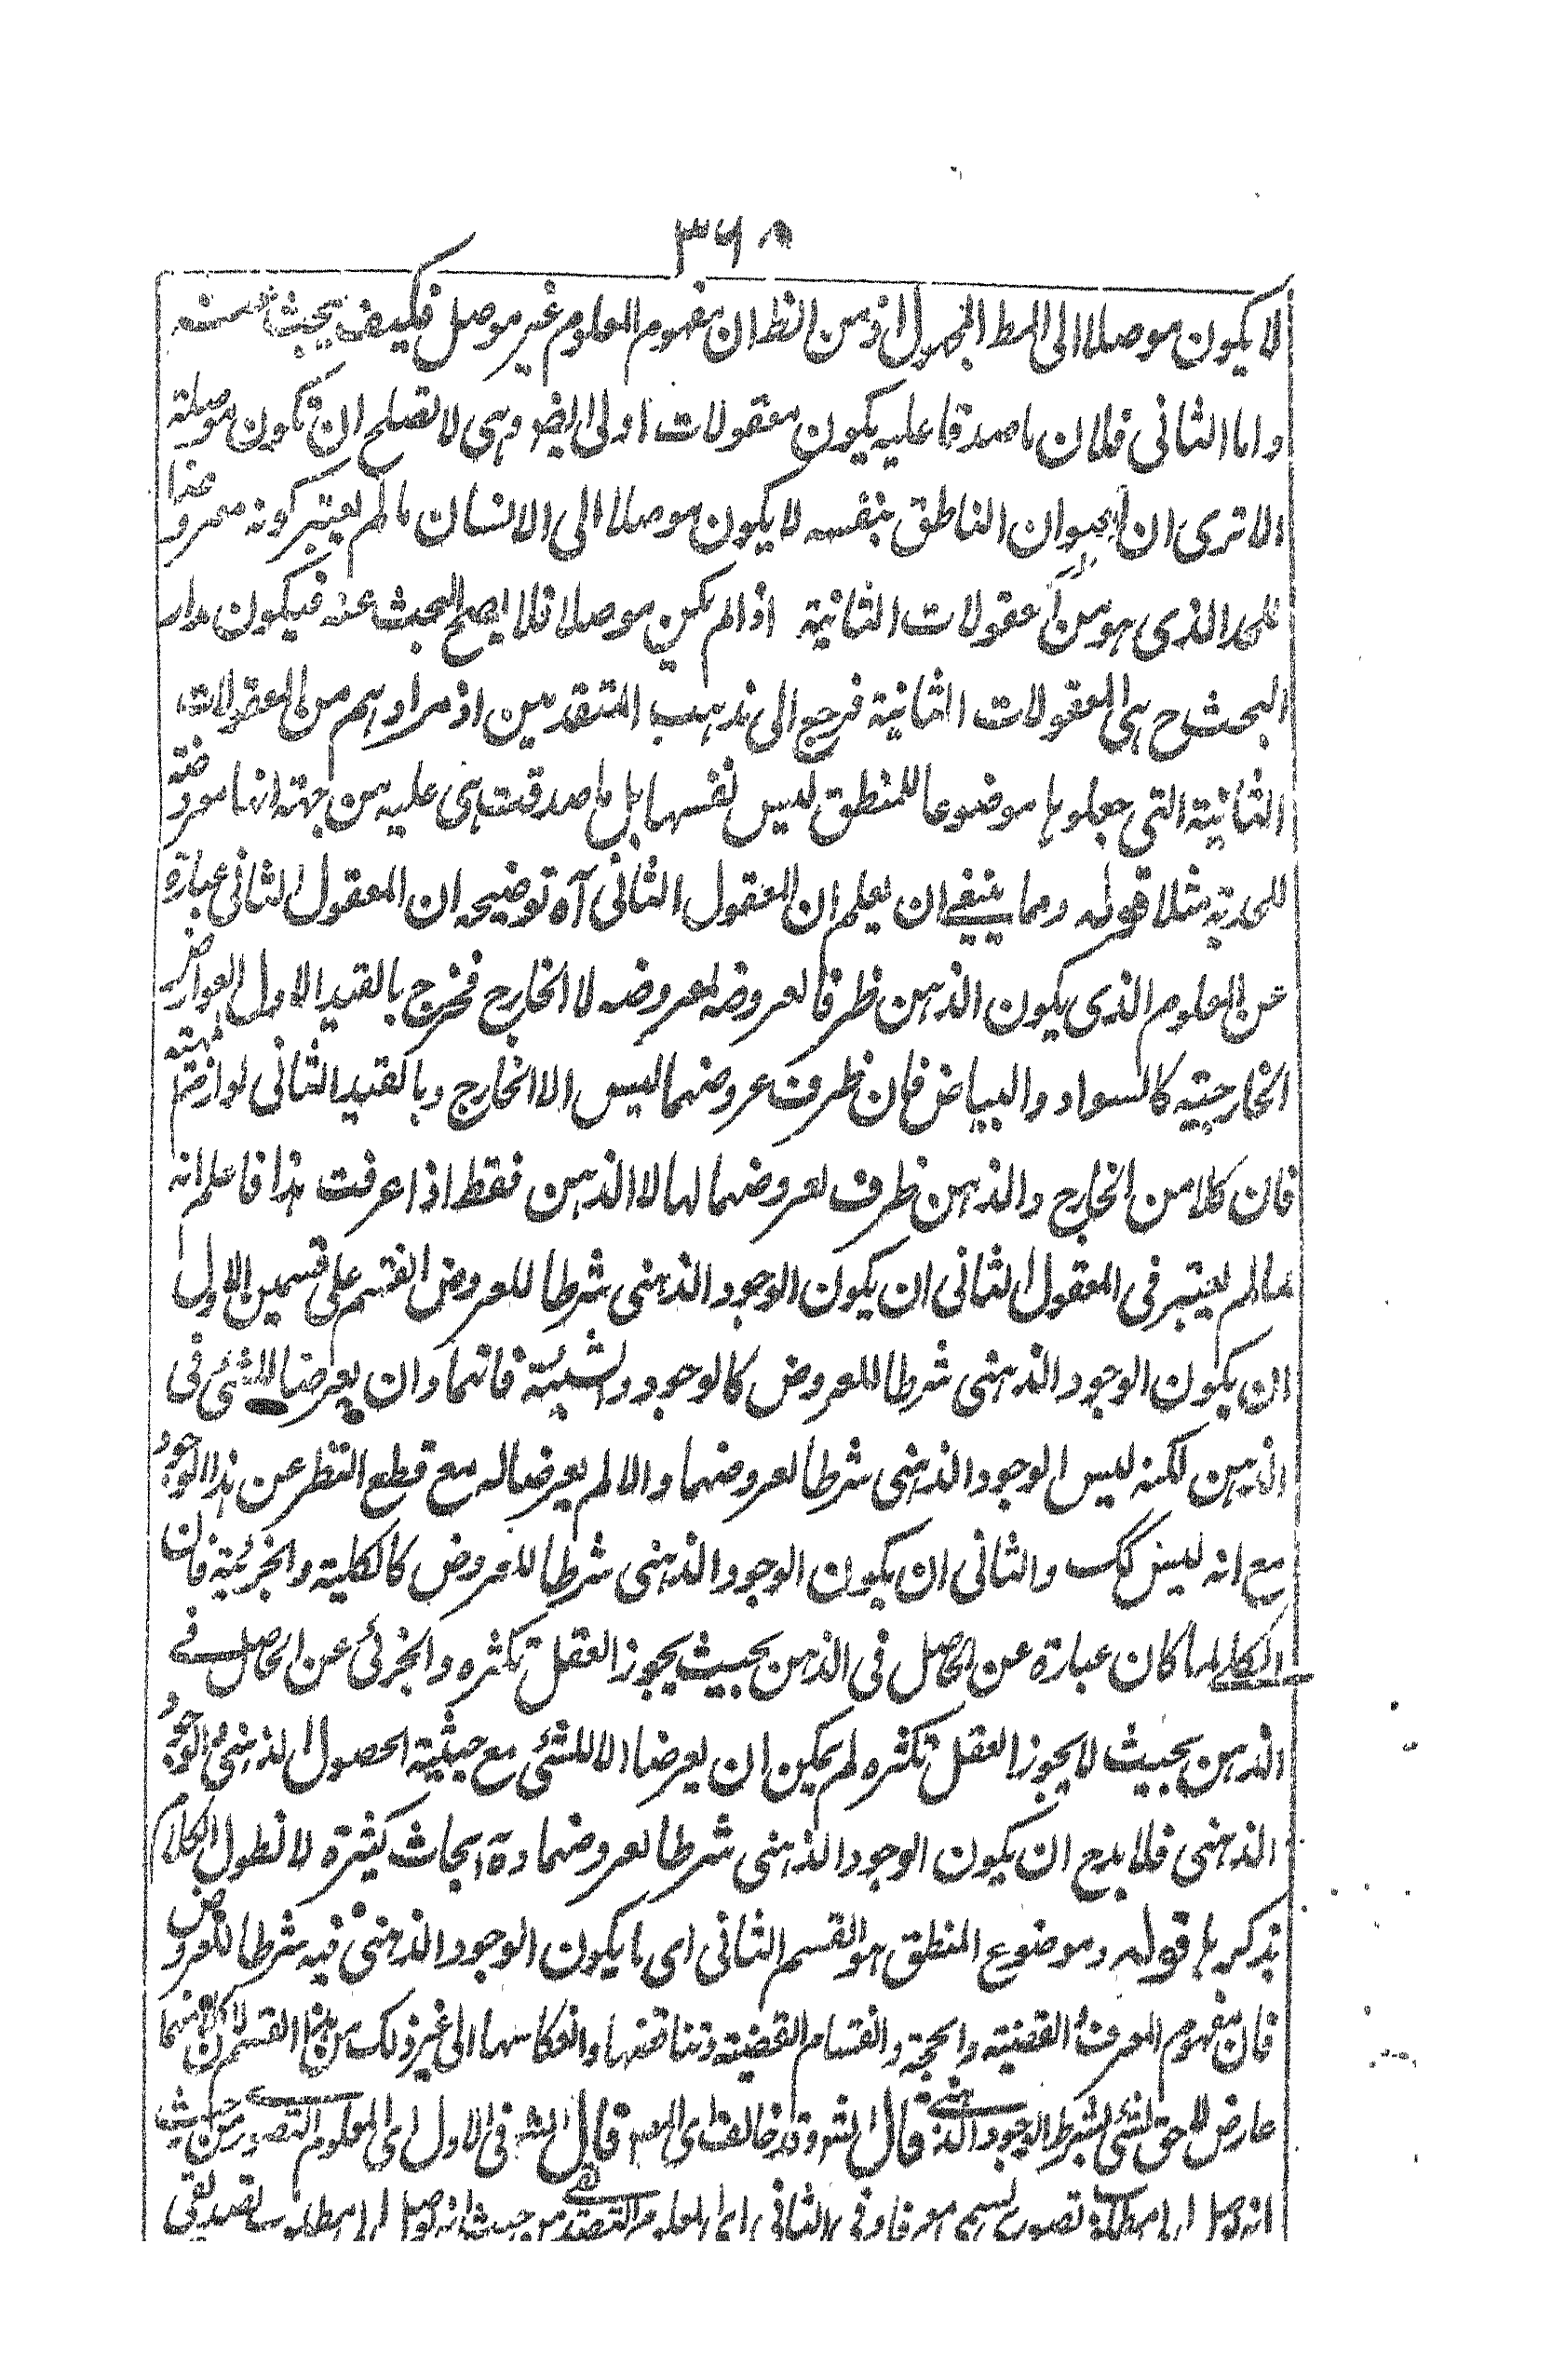 ٣٦٨
لا يكون موصلا الى المط المجهول اذ من الظ ان مفهوم المعلوم غير موصل فكيف يبحث عنه
واما الثانى فلان ما صدقا عليه يكون معقولات اولى ايضه وهى لا تصلح ان تكون موصلة
الا ترى ان الحيوان الناطق بنفسه لا يكون موصلا الى الانسان ما لم يعتبر كونه معروضا
للحد الذى هو من المعقولات الثانية اذا لم يكن موصلا فلا يصلح البحث عنه فيكون مدار
البحث ح هى المعقولات الثانية فرجع الى مذهب المتقدمين اذ مرادهم من المعقولات
الثانية التى جعلوها موضوعا للمنطق ليس نفسها بل ما صدقت هى عليه من جهة انها معروضة
للحدية مثلا قوله ومما ينبغى ان يعلم ان المعقول الثانى آه توضيحه ان المعقول الثانى عبارة
عن المعلوم الذى يكون الذهن ظرفا لعروضه لمعروضه لا الخارج فخرج بالقيد الاول العوارض
الخارجية كالسواد والبياض فان ظرف عروضهما ليس الا الخارج وبالقيد الثانى لوازم المهية
فان كلا من الخارج والذهن ظرف لعروضهما لها لا الذهن فقط اذا عرفت هذا فاعلم انه
لما لم يعتبر فى المعقول الثانى ان يكون الوجود الذهنى شرطا للعروض انقسم على قسمين الاول
ان يكون الوجود الذهنى شرطا للعروض كالوجود والشيئية فانهما وان يعرضا للشئ فى
الذهن لكنه ليس الوجود الذهنى شرطا لعروضهما والا لم يعرضا له مع قطع النظر عن هذا الوجود
مع انه ليس كك والثانى ان يكون الوجود الذهنى شرطا للعروض كالكلية والجزئية فان
الكلى لما كان عبارة عن الحاصل فى الذهن بحيث يجوز العقل تكثره والجزئى عن الحاصل فى
الذهن بحيث لا يجوز العقل تكثره لم يمكن ان يعرضا الا للشئ مع حيثية الحصول الذهنى والوجود
الذهنى فلا بدع ان يكون الوجود الذهنى شرطا لعروضهما وة ابحاث كثيرة لا نطول الكلام
بذكرها قوله وموضوع المنطق هو القسم الثانى اى ما يكون الوجود الذهنى فيه شرطا للعروض
فان مفهوم المعرف والقضية والحجة وانقسام القضية وتناقضها وانعكاسها الى غير ذلك من هذا القسم لان كلا منهما
عارض لاحق لشئ بشرط الوجود الذهنى قال الشه وقد خالف اى المصه قال الشه فى الاول اى المعلوم التصورى من حيث
انه موصل الى مطلوب تصورى يسمى معرفا وفى الثانى اى المعلوم التصديقى من حيث انه موصل الى مطلوب تصديقى